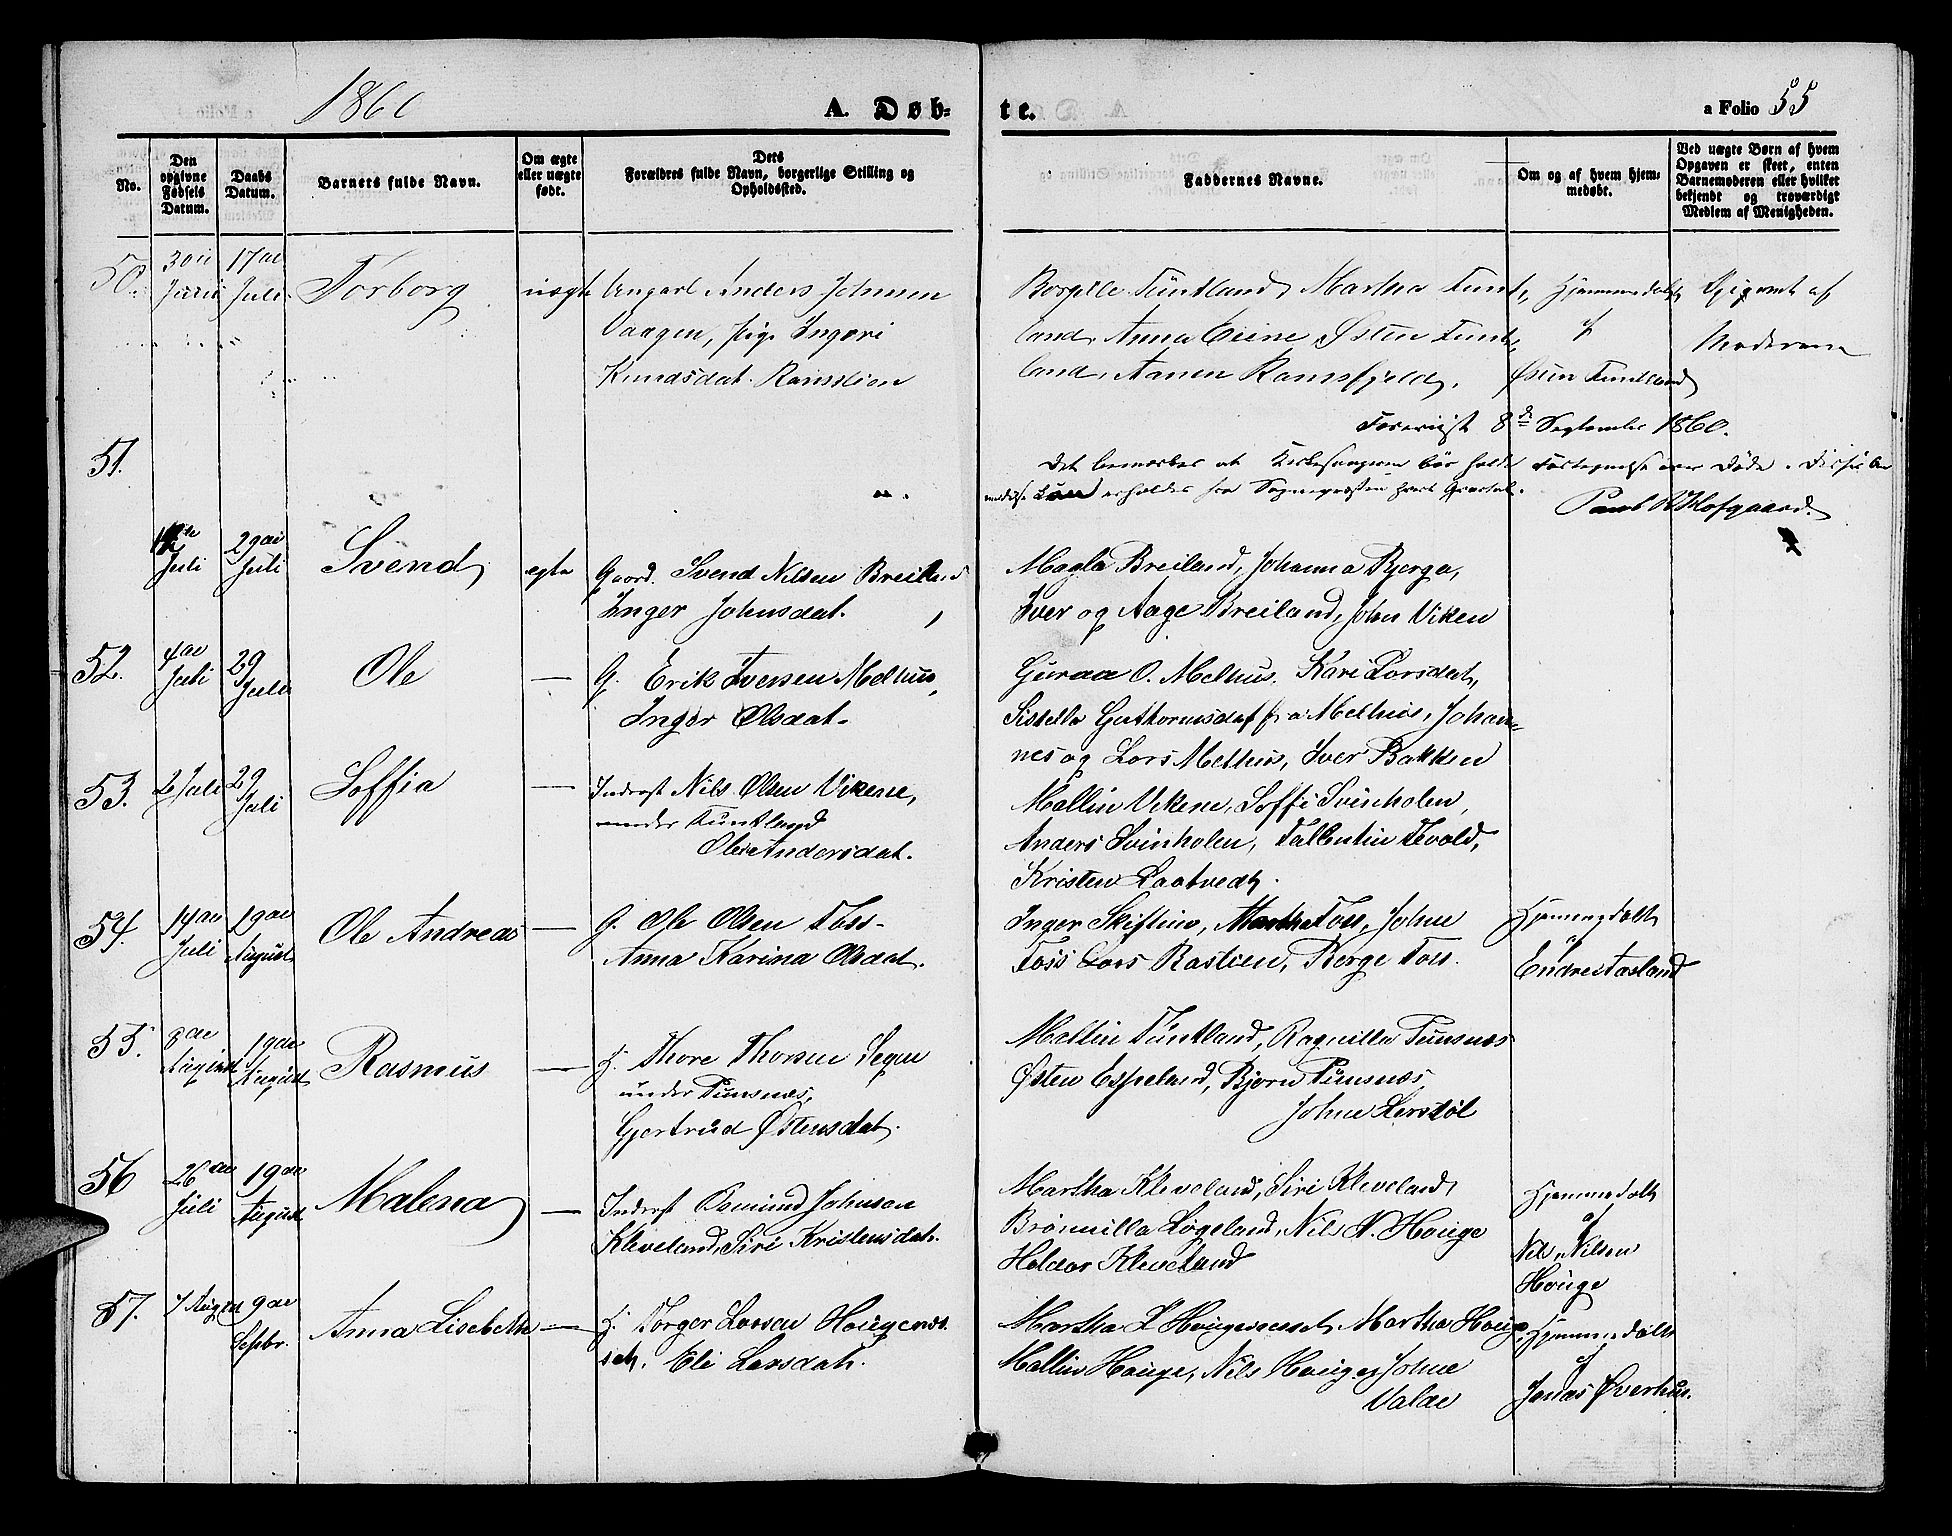 1860
A. Døb-
te.
a Folio 55
No.
Den opgivne Fødsels Datum.
Daabs Datum.
Barnets fulde Navn.
Om ægte eller uægte født.
Dets Forældres fulde Navn, borgerlige Stilling og Opholdssted.
Faddernes Navne.
Om og af hvem hjemmedøbt.
Ved uægte Børn af hvem Opgaven er skeet, enten Barnemoderen eller hvilket bekjendt og troværdigt Medlem af Menigheden.
50. 30te 17de
Juni Juli Torborg uægte Ungkarl Anders Johnsen
Vaagen, pige Ingeri
Knudsdat. Ramslien
Tuntland, Martha Tunt-
land, Anna Eeine Østen Tunt-
land, Aanen Ramsfjeld,
Hjemmedøbt
af
Østen Tuntland
Opgivet af
Moderen
Foreviist 8de September 1860.
Det bemærkes at Kirkesangeren bør holde Fortegnelse over Døde.
erholdes fra Sognepræsten hvert Qvartal.
Hofgaard.
51.
Juli 29de Juli Svend egte Gaard. Svend Nilsen Breiland
Inger Johnsdat.
Magla Breiland, Johanna Bjerga,
Iver og Aage Breiland, John Viken
52. 4de Juli 29 Juli Ole — G. Erik Iversen Melhus,
Inger Olsdat.
Guraa O. Melhus. Kari Larsdat,
Siselle Guthormsdat fra Melhus, Johan-
nes og Lars Melhus, Iver Bakken
53. 2 Juli 29 Juli Soffia — Inderst Nils Olsen Vikene,
under Tuntland
Olene Andersdat.
Mallin Vikene, Soffi Svinholen,
Anders Svinholen, Tallentin Tevold,
Kristen Laatvedt.
54. 14de Juli 19de August Ole Andreas — G. Ole Olsen Foss-
Anna Karina Olsdat.
Inger Skiftun, Martha Foss, John
Foss Lars Rastien, Berge Foss.
Hjemmedøbt
af
Endre Tasland
55. 8de August 19de August Rasmus — H. Thore Thorsen
under Tunsnæs,
Gjertrud Østensdat.
Mallin Tuntland, Ragnilla Tunsnæs
Østen Espeland, Bjorn Tunsnæs,
Johne Lerstøl
56 26de Juli 19de August Malena — Inderst Osmund Johnsen
Kleveland, Siri Kristensdat.
Martha Kleveland, Siri Kleveland,
Brønnilla Løgeland, Nils N. Houge
Holdor Kleveland
Hjemmedøbt
af
Nils Nilsen
Houge
57. 7 August 9de Septbr. Anna Lisebette — H. Torger Larsen Hougenes-
set. Eli Larsdat.
Martha L Hougenesset, Martha Houge,
Mallin Houge, Nils Houge, Johne
Valae
Hjemmedøbt
af
Jonas Øverhus.